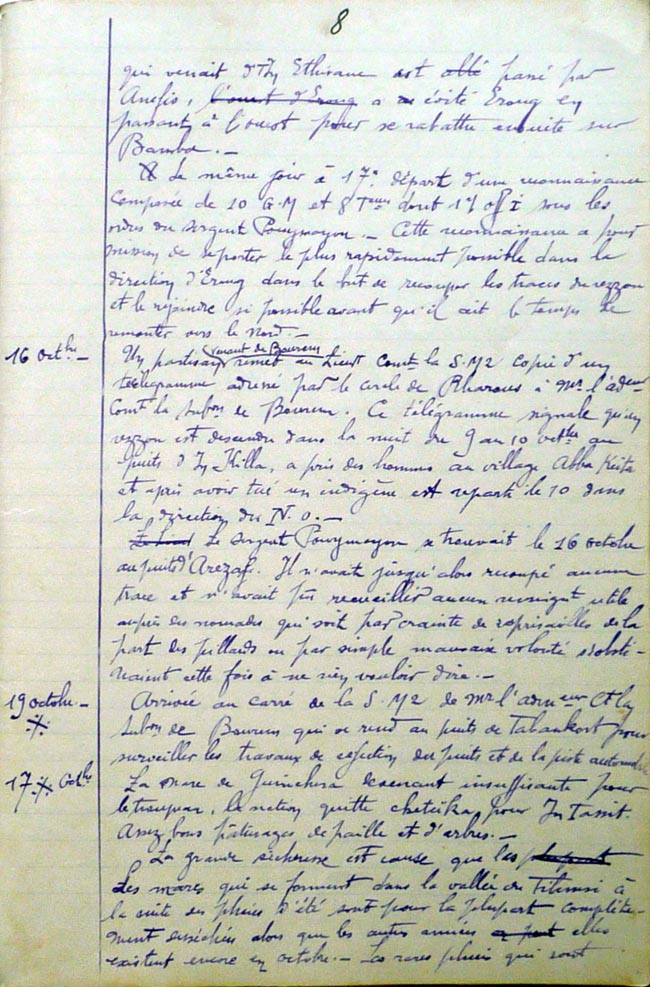 8
qui venait d'In Ethisane est ~~allé~~ passé par
Anefis, ~~l'ouest d'Ersug~~ a évité Ersug en
passant à l'ouest pour se rabattre ensuite sur
Bamba. —
Le même jour à 17h départ d'une reconnaissance
composée de 10 G.M et 8 Teurs dont 1 off I sous les
ordres du sergent Pouymayon. — Cette reconnaissance a pour
mission de se porter le plus rapidement possible dans la
direction d'Ersug dans le but de recouper les traces du rezzou
et le rejoindre si possible avant qu'il ait le temps de
remonter vers le Nord. —
16 octbre — Un partisan venant de Bourem remet au Lieut Comt la S.M2 copie d'un
télégramme adressé par le cercle de Rharous à Mr l'adeur
Comt la subon de Bourem. Ce télégramme signale qu'un
rezzou est descendu dans la nuit du 9 au 10 octbre au
puits d'In Killa, a pris des hommes au village Abba Keita
et après avoir tué un indigène est reparti le 10 dans
la direction du N.O. —
Le sergent Pouymayon se trouvait le 16 octobre
au puits d'Arezaf. Il n'avait jusqu'alors recoupé aucune
trace et n'avait pu recueillir aucun renseignt utile
auprès des nomades qui soit par crainte de représailles de la
part des pillards ou par simple mauvaise volonté s'obsti-
naient cette fois à ne rien vouloir dire. —
19 octobre — Arrivée au carré de la S.M2 de Mr l'admeur Ct la
subon de Bourem qui se rend au puits de Tabankort pour
surveiller les travaux de réfection du puits et de la piste automobile
17 Octbre La mare de Guinchira devenant insuffisante pour
le troupeau, la section quitte cheteika pour In Tassit.
Assez bons pâturages de paille et d'arbres. —
La grande sécheresse est cause que les ~~plupart~~
Les mares qui se forment dans la vallée du Tilemsi à
la suite des pluies d'été sont pour la plupart complète-
ment desséchées alors que les autres années elles
existent encore en octobre. — Les rares pluies qui sont